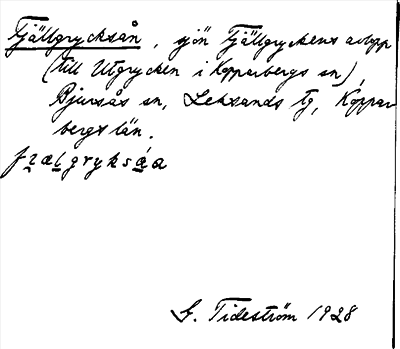 Fjällgrycksån, sjön Fjällgryckens avlopp
(till Utgrycken i Kopparbergs sn),
Bjursås sn, Leksands tg, Koppar-
bergs län.
G. Tideström 1928